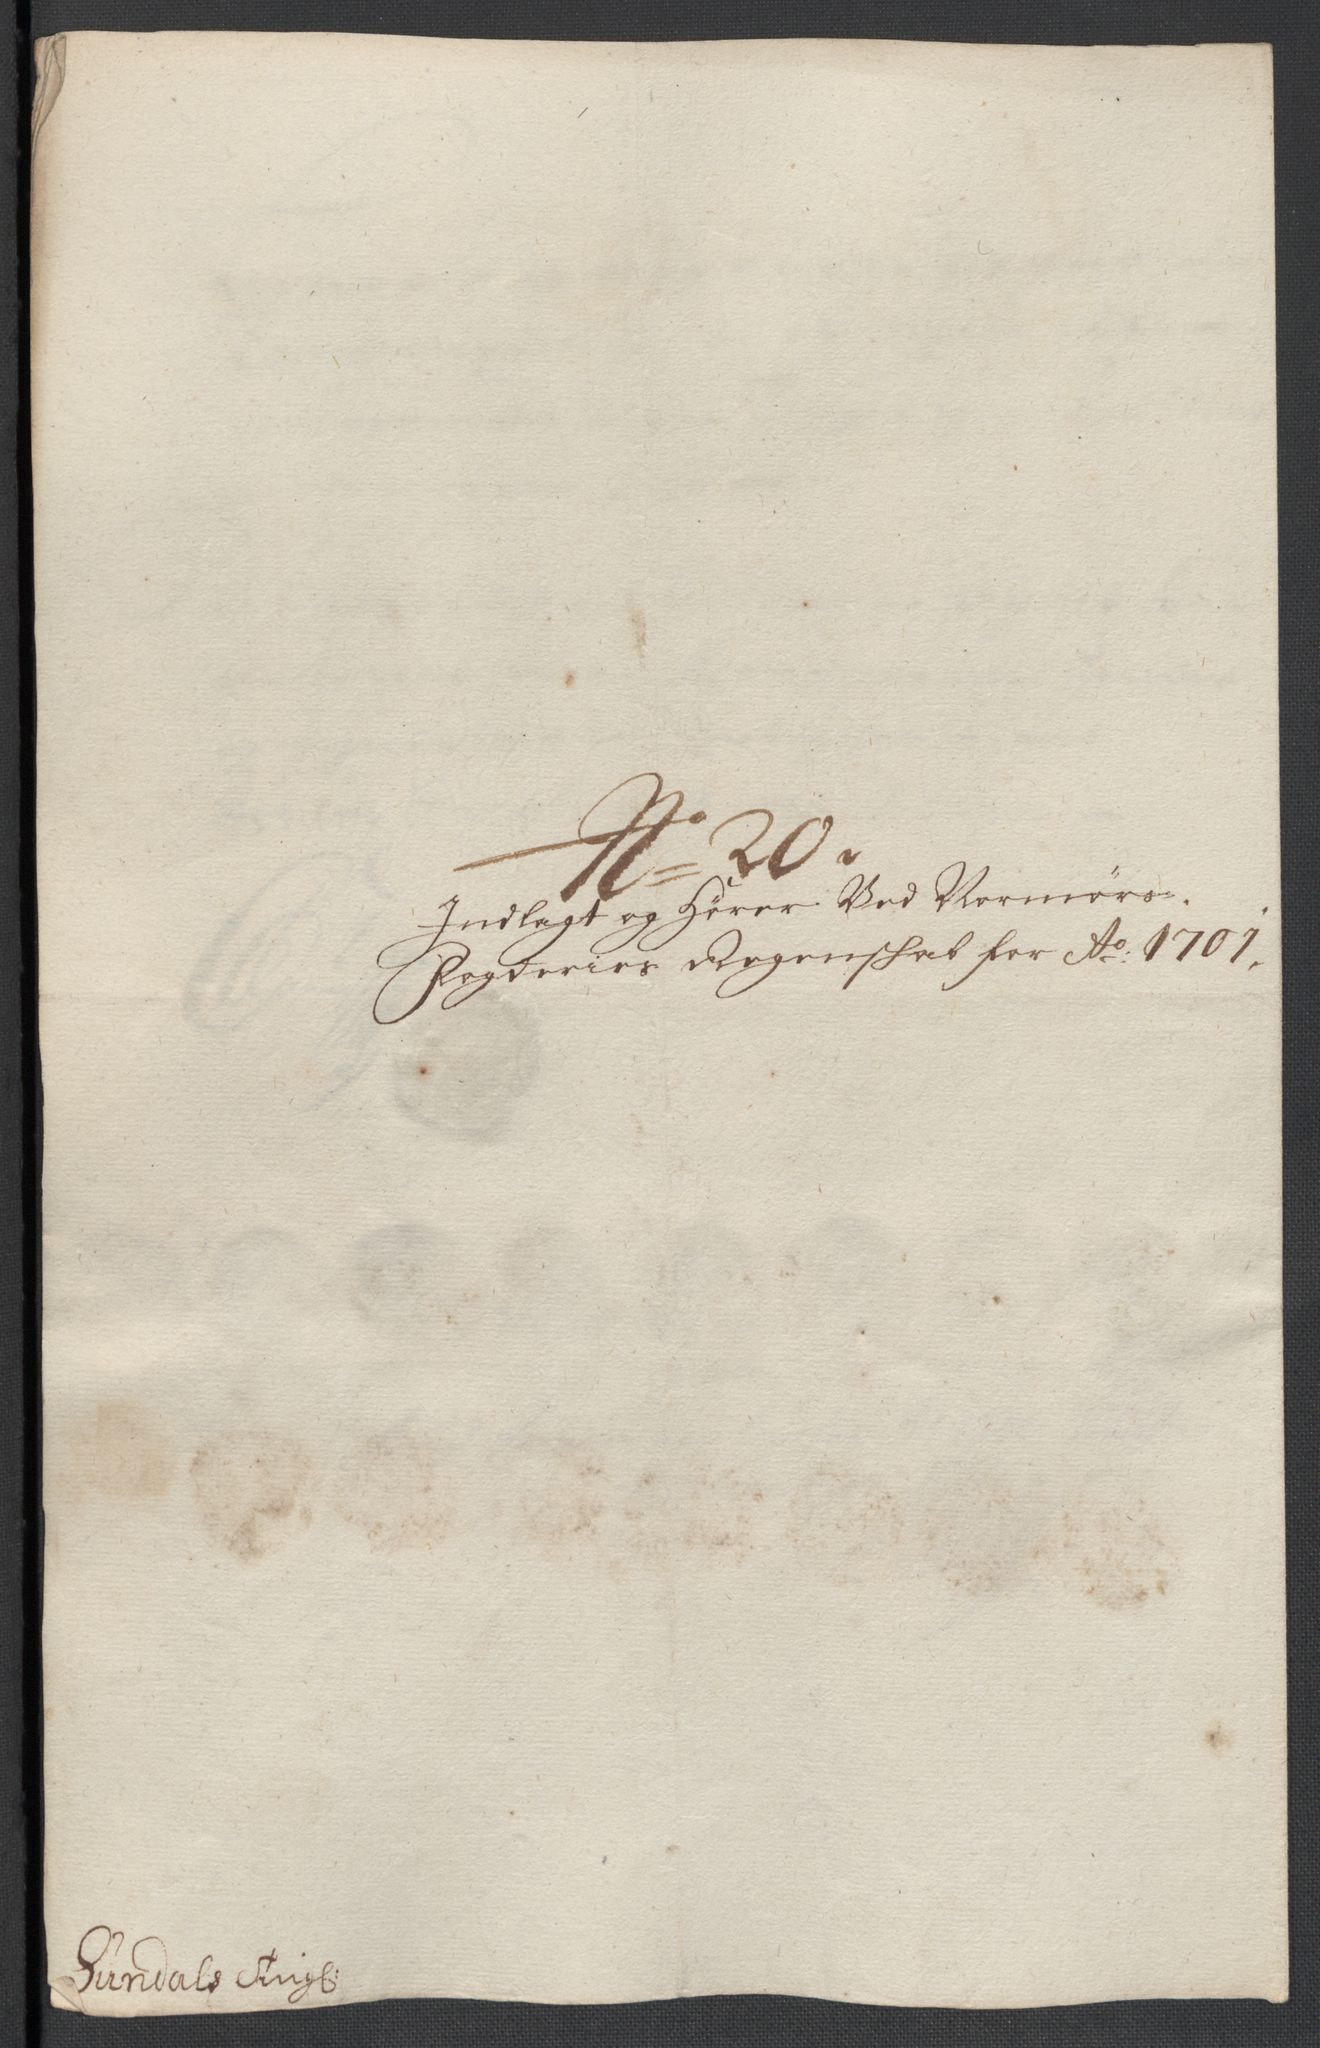 No 20.
Indlagt og Hörer Ved Normörs.
Fogderies Regenschab for Ao: 1701.
Sundals Tingl: